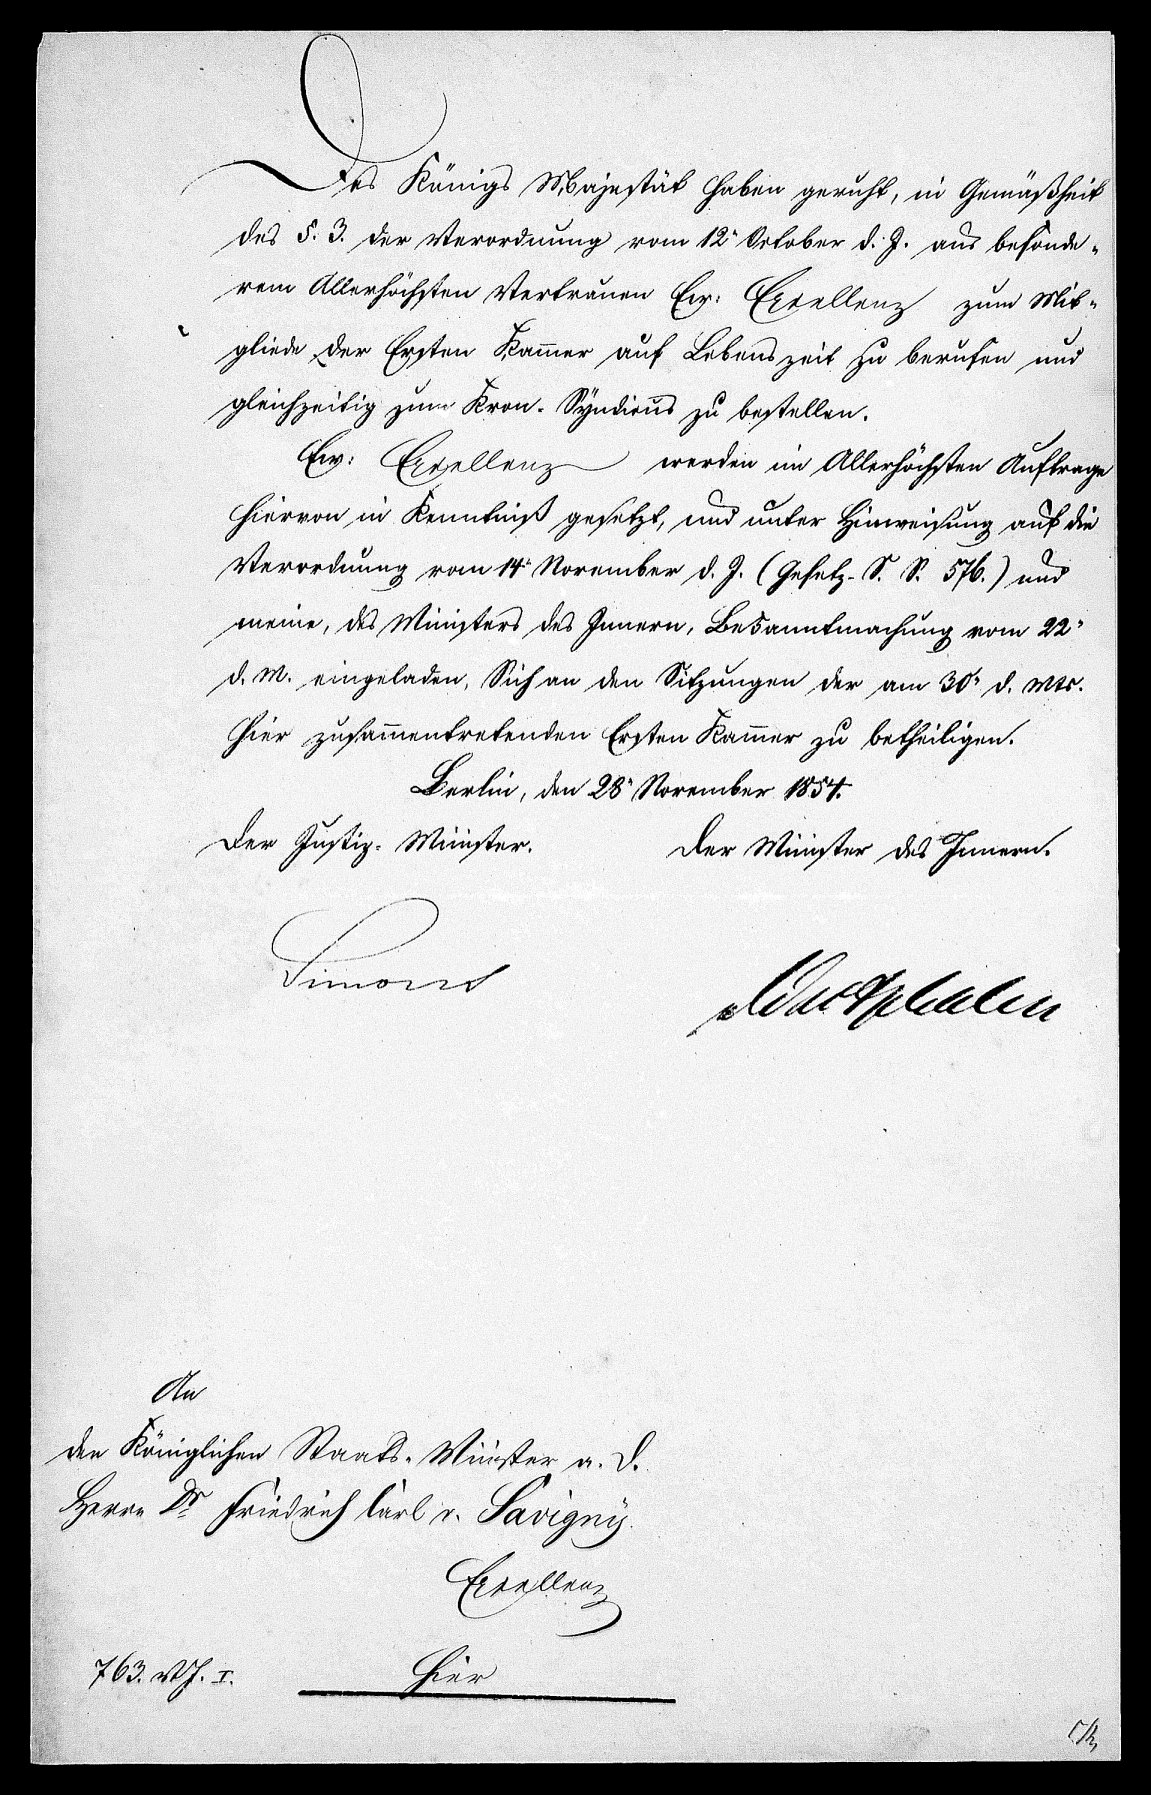 Des Königs Majestät haben geruht, in Gemäßheit
des §. 3. der Verordnung vom 12n October d. J. aus besonde-
rem Allerhöchsten Vertrauen Ew: Excellenz zum Mit-
gliede der Ersten Kam̄er auf Lebenszeit zu berufen und
gleichzeitig zum Kron-Syndicus zu bestellen.
Ew: Excellenz werden im Allerhöchsten Auftrage
hiervon in Kenntniß gesetzt, und unter Hinweisung auf die
Verordnung vom 14n November d. J. (Gesetz-S. S. 576.) und
meine, des Ministers des Innern, Bekanntmachung vom 22n
d. M. eingeladen, Sich an den Sitzungen der am 30n d. Mts.
hier zusam̄entretenden Ersten Kam̄er zu betheiligen.
Berlin, den 28n November 1854.
Der Justiz-Minister. Der Minister des Innern.
Simons Westphalen
An
den Königlichen Staats-Minister a. D.
Herrn Dr Friedrich Carl v. Savigny
Excellenz
763. M. J. I. hier